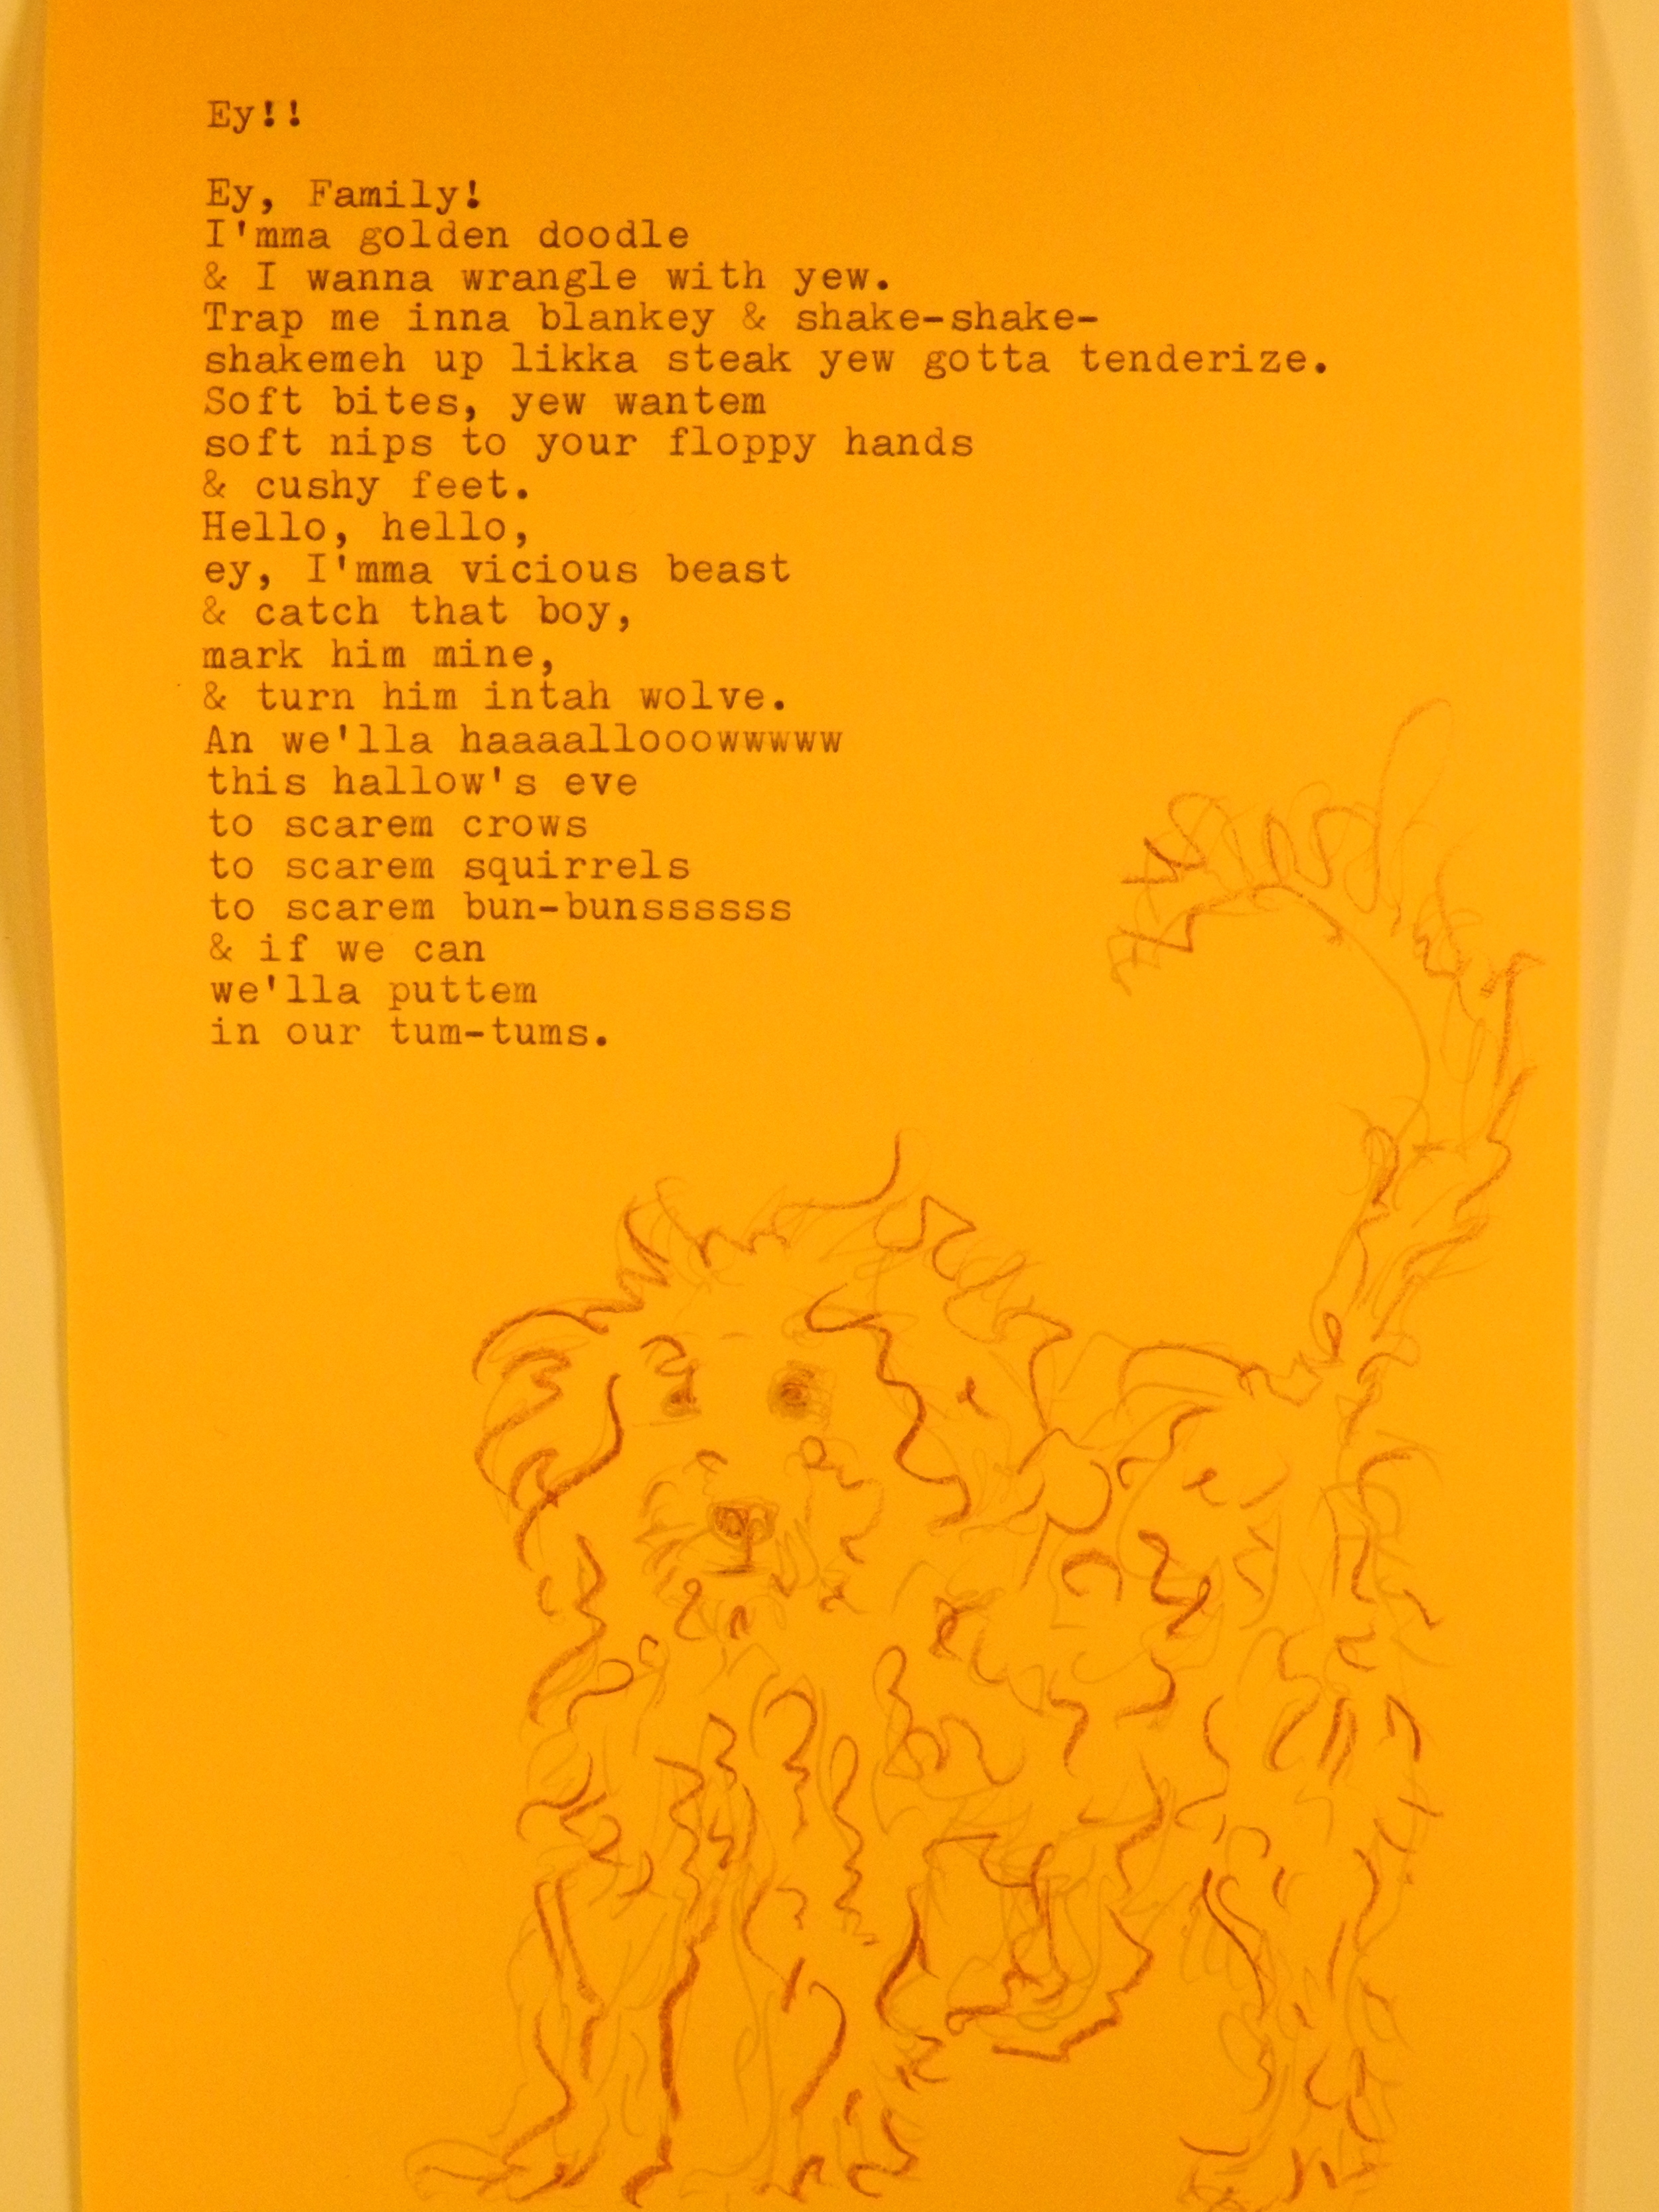 Ey!!
Ey, Family!
I'mma golden doodle
& I wanna wrangle with yew.
Trap me inna blankey & shake-shake-
shakemeh up likka steak yew gotta tenderize.
Soft bites, yew wantem
soft nips to your floppy hands
& cushy feet.
Hello, hello,
ey, I'mma vicious beast
& catch that boy,
mark him mine,
& turn him intah wolve.
An we'lla haaaallooowwwww
this hallow's eve
to scarem crows
to scarem squirrels
to scarem bun-bunssssss
& if we can
we'lla puttem
in our tum-tums.